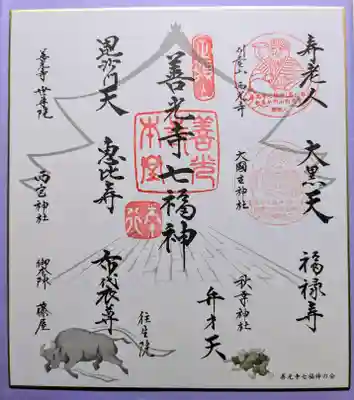 寿老人
刈萱山 西光寺
大黒天
大國主神社
福禄寿
秋葉神社
弁才天
善光寺七福神
善光
本堂
往生院
毘沙門天
善光寺 世尊院
恵比寿
西宮神社
布袋尊
御本陳 藤屋
善光寺七福神の会